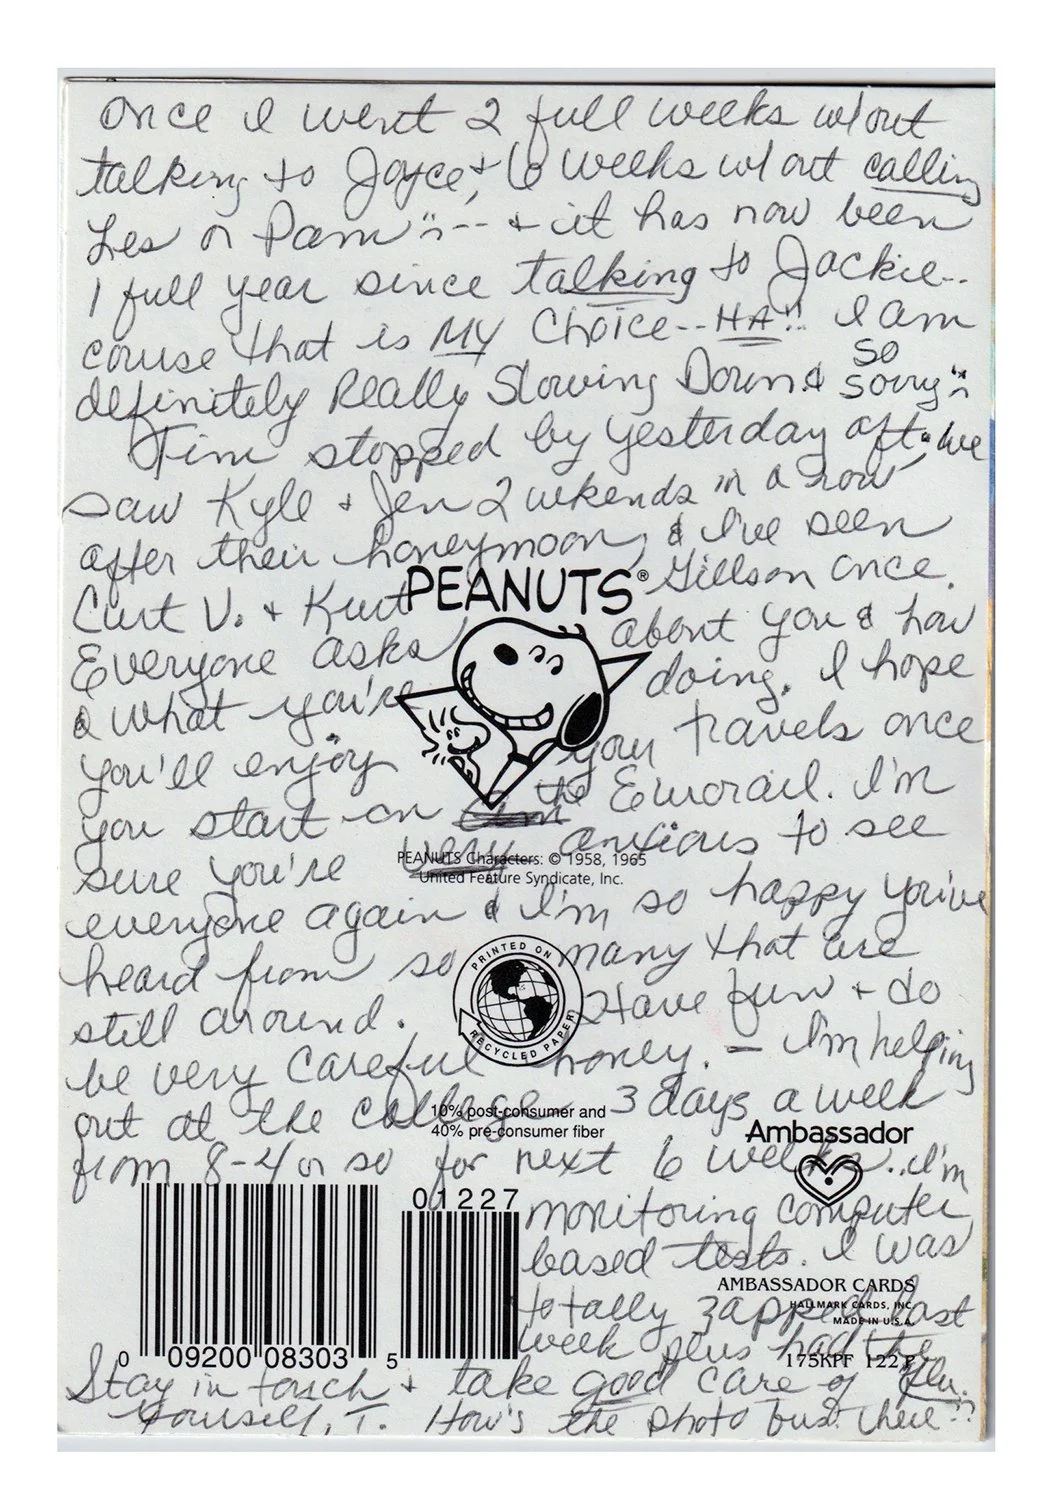 Once I went 2 full weeks w/out
talking to Joyce, + 6 weeks w/out calling
Les or Pam"--- + it has now been
1 full year since talking to Jackie--
course that is MY Choice--HA!! I am
definitely Really Slowing Down & so sorry
Tim stopped by yesterday aft. we
saw Kyle + Jen 2 wkends in a row
after their honeymoon, & I've seen
Curt V. + Kurt Gillson once.
PEANUTS®
Everyone asks about you & how
& what you're doing. I hope
you'll enjoy your travels once
you start on the Eurorail. I'm
sure you're very anxious to see
PEANUTS Characters: © 1958, 1965
United Feature Syndicate, Inc.
everyone again & I'm so happy you've
heard from so many that are
still around. Have fun + do
PRINTED ON
RECYCLED PAPER
be very careful honey. - I'm helping
out at the college 3 days a week
10% post-consumer and
40% pre-consumer fiber
Ambassador
from 8-4 or so for next 6 weeks.. I'm
01227
monitoring computer
based tests. I was
AMBASSADOR CARDS
HALLMARK CARDS, INC.
MADE IN U.S.A.
totally zapped last
week plus had the
flu.
175KPF 122
0 09200 08303 5
Stay in touch + take good care of
Yourself, T. How's the photo bus. there